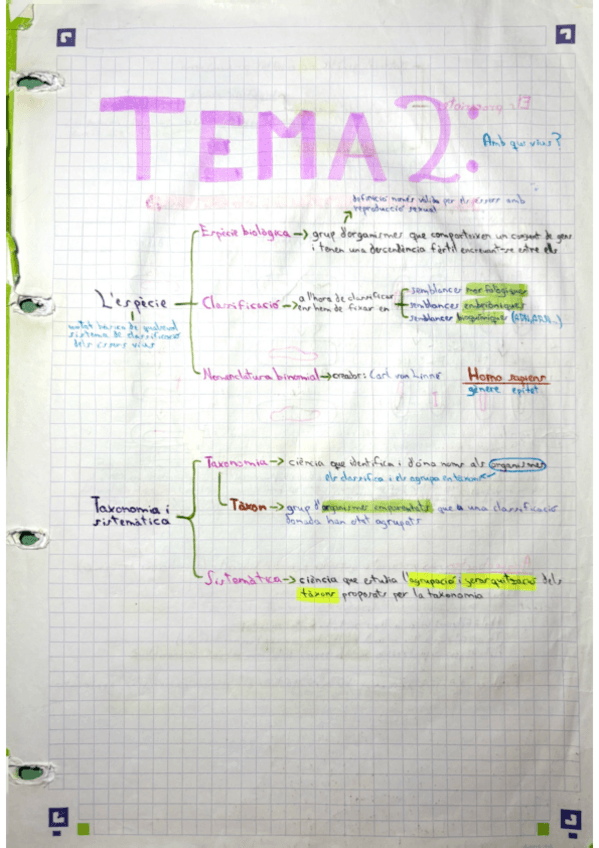 TEMA 2:
Amb que vius?
definició només vàlida per els éssers amb
reproducció sexual
Espècie biològica → grup d'organismes que comparteixen un conjunt de gens
i tenen una descendència fèrtil encreuant-se entre ells
L'espècie
unitat bàsica de qualsevol
sistema de classificació
dels éssers vius
Classificació → a l'hora de classificar
ens hem de fixar en
semblances morfològiques
semblances embriòniques
semblances bioquímiques (ADN, ARN...)
Nomenclatura binomial → creador: Carl von Linné
Homo sapiens
gènere epítet
Taxonomia i
sistemàtica
Taxonomia → ciència que identifica i dóna noms als organismes
els classifica i els agrupa en tàxons
Tàxon → grup d'organismes emparentats que a una classificació
donada han estat agrupats
Sistemàtica → ciència que estudia l'agrupació i jerarquització dels
tàxons proposats per la taxonomia